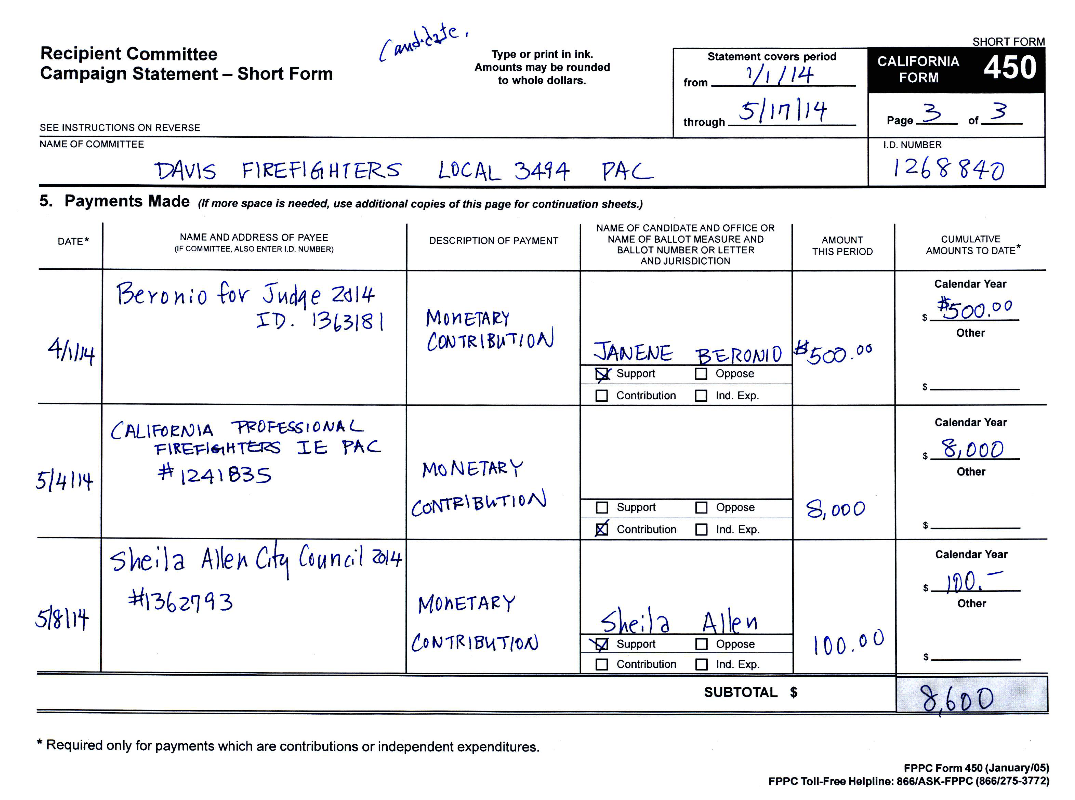 SHORT FORM
Candidate.
Recipient Committee
Campaign Statement – Short Form
Type or print in ink.
Amounts may be rounded
to whole dollars.
Statement covers period
from 1/1/14
through 5/17/14
CALIFORNIA
FORM 450
Page 3 of 3
SEE INSTRUCTIONS ON REVERSE
NAME OF COMMITTEE
I.D. NUMBER
DAVIS FIREFIGHTERS LOCAL 3494 PAC
1268840
5. Payments Made (If more space is needed, use additional copies of this page for continuation sheets.)
DATE*
NAME AND ADDRESS OF PAYEE
(IF COMMITTEE, ALSO ENTER I.D. NUMBER)
DESCRIPTION OF PAYMENT
NAME OF CANDIDATE AND OFFICE OR
NAME OF BALLOT MEASURE AND
BALLOT NUMBER OR LETTER
AND JURISDICTION
AMOUNT
THIS PERIOD
CUMULATIVE
AMOUNTS TO DATE*
4/1/14
Beronio for Judge 2014
ID. 1363181
MONETARY
CONTRIBUTION
JANENE BERONIO
Support Oppose
Contribution Ind. Exp.
$500.00
Calendar Year
$ $500.00
Other
$
5/4/14
CALIFORNIA PROFESSIONAL
FIREFIGHTERS IE PAC
#1241835
MONETARY
CONTRIBUTION
Support Oppose
Contribution Ind. Exp.
8,000
Calendar Year
$ 8,000
Other
$
5/8/14
Sheila Allen City Council 2014
#1362793
MONETARY
CONTRIBUTION
Sheila Allen
Support Oppose
Contribution Ind. Exp.
100.00
Calendar Year
$ 100.–
Other
$
SUBTOTAL $ 8,600
* Required only for payments which are contributions or independent expenditures.
FPPC Form 450 (January/05)
FPPC Toll-Free Helpline: 866/ASK-FPPC (866/275-3772)